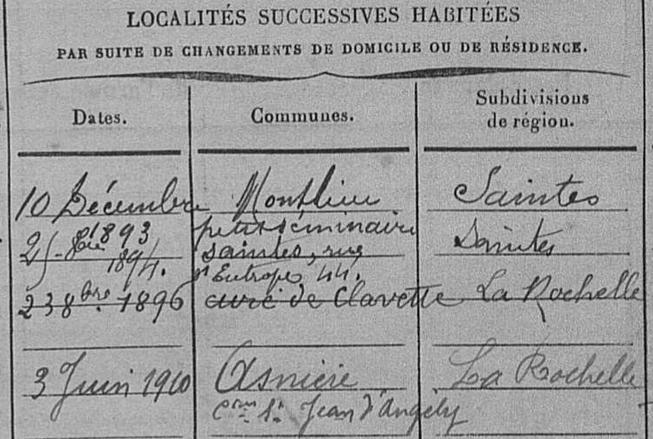 LOCALITÉS SUCCESSIVES HABITÉES
PAR SUITE DE CHANGEMENTS DE DOMICILE OU DE RÉSIDENCE.
Dates. Communes. Subdivisions de région.
10 Décembre Montlieu Saintes
1893 petit séminaire
25 1894. Saintes, rue Saintes
St Eutrope 44.
23 8bre 1896 curé de Clavette La Rochelle
3 Juin 1910 Asnière La Rochelle
Con St Jean d'Angély